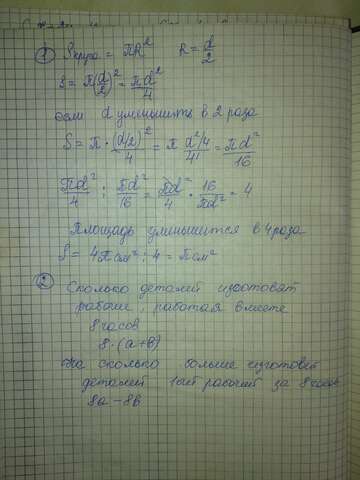 ① Sкруга = πR² R = d/2
S = π(d/2)² = πd²/4
если d уменьшить в 2 раза
S = π · (d/2)²/4 = π d²/4/4 = πd²/16
πd²/4 : πd²/16 = πd²/4 · 16/πd² = 4
Площадь уменьшится в 4 раза
S = 4π см² : 4 = π см²
② Сколько деталей изготовят
рабочие, работая вместе
8 часов
8·(a+b)
На сколько больше изготовит
деталей 1ый рабочий за 8 часов
8a − 8b